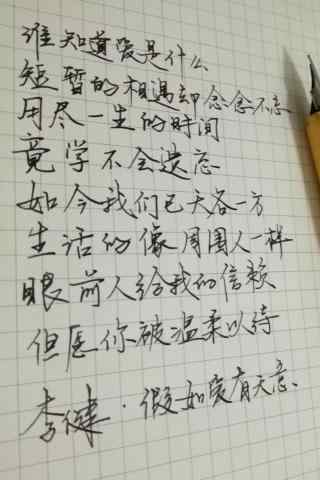 谁知道爱是什么
短暂的相遇却念念不忘
用尽一生的时间
竟学不会遗忘
如今我们已天各一方
生活的像周围人一样
眼前人给我的信赖
但愿你被温柔以待
李健·假如爱有天意、